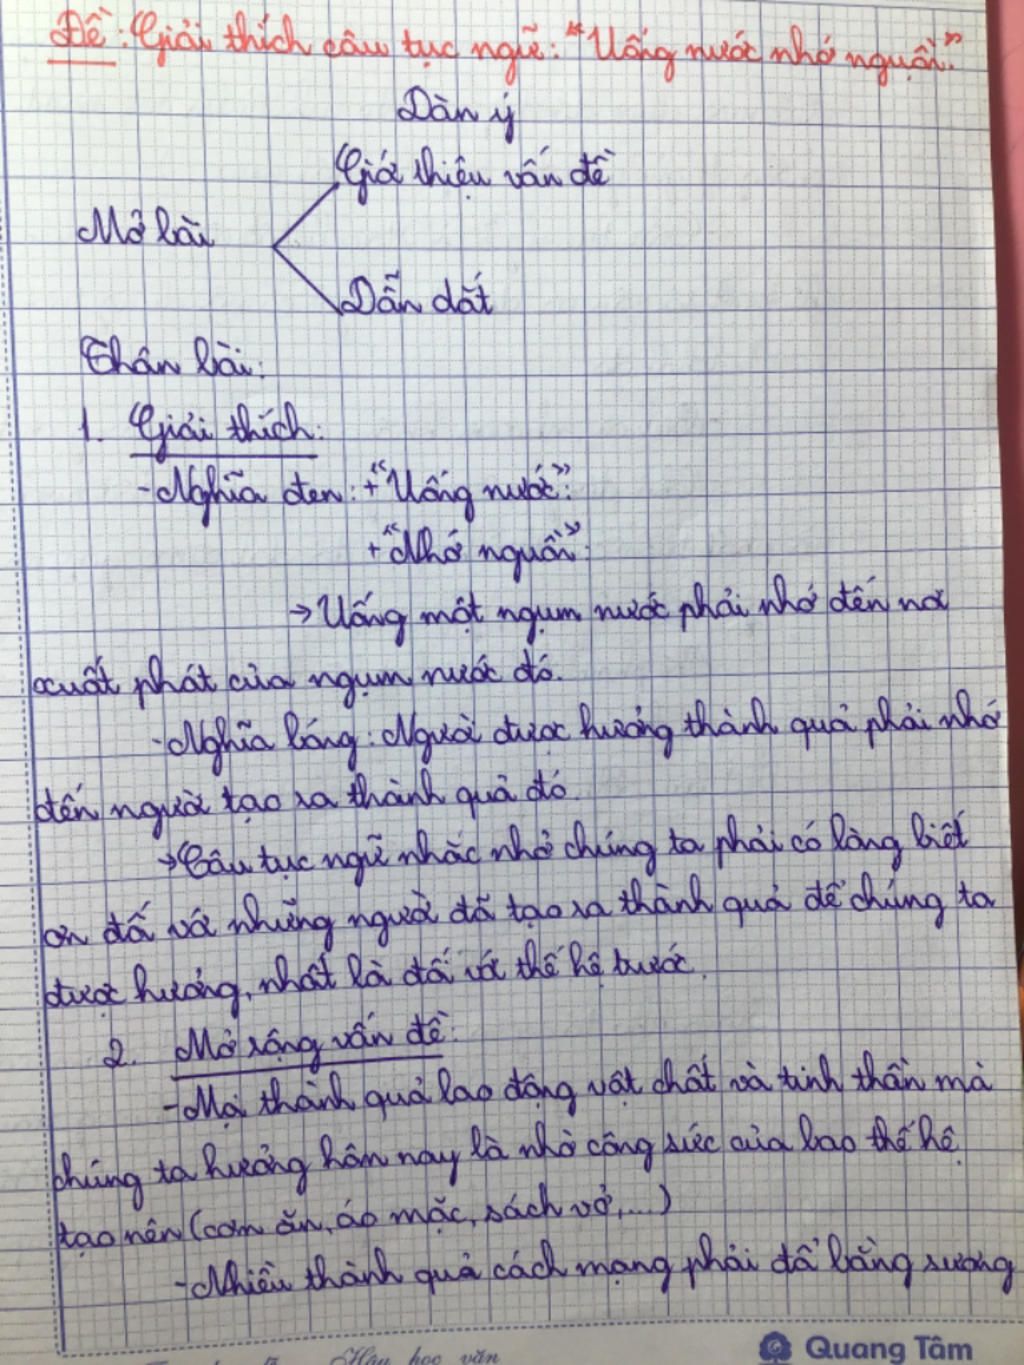 Đề: Giải thích câu tục ngữ: "Uống nước nhớ nguồn."
Dàn ý
Giới thiệu vấn đề
Mở bài
Dẫn dắt
Thân bài:
1. Giải thích:
- Nghĩa đen: + "Uống nước":
+ "Nhớ nguồn":
→ Uống một ngụm nước phải nhớ đến nơi
xuất phát của ngụm nước đó.
- Nghĩa bóng: Người được hưởng thành quả phải nhớ
đến người tạo ra thành quả đó.
→ Câu tục ngữ nhắc nhở chúng ta phải có lòng biết
ơn đối với những người đã tạo ra thành quả để chúng ta
được hưởng, nhất là đối với thế hệ trước.
2. Mở rộng vấn đề:
- Mọi thành quả lao động vật chất và tinh thần mà
chúng ta hưởng hôm nay là nhờ công sức của bao thế hệ
tạo nên (cơm ăn, áo mặc, sách vở,...)
- Nhiều thành quả cách mạng phải đổi bằng xương
học văn
Quang Tâm